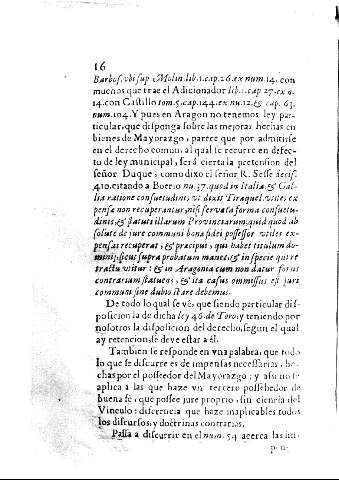 16
Barbos. vbi sup. Molin. lib. 1. cap. 26. ex num. 14. con
muchos que trae el Adicionador lib. 1. cap. 27. ex n.
14. con Castillo tom. 5. cap. 144. ex nu. 12. & cap. 63.
num. 104. Y pues en Aragon no tenemos ley par-
ticular, que disponga sobre las mejoras hechas en
bienes de Mayorazgo, parece que por admitirse
en el derecho comun, al qual se recurre en defec-
to de ley municipal, serà cierta la pretension del
señor Duque, como dixo el señor R. Sesse decis.
410. citando a Boerio nu. 37. quod in Italia: & Gal-
lia ratione consuetudinis, vt dixit Tiraquel. vtiles, ex
pensæ non recuperantur, nisi servata forma consuetu-
dinis, & statuti illarum Provinciarum. quid quod ab
solute de jure communi bonæ fidei possessor vtiles ex-
pensas recuperat, & præcipuè, qui habet titulum do-
minij: sicut supra probatum manet: & in specie qui re
tractu vtitur: & in Aragonia cum non datur forus
contrarium statuens, & ita casus omissus est juri
communi sine dubio stare debemus.
De todo lo qual se vè, que siendo particular dis-
posicion la de dicha ley 46. de Toro, y teniendo por
nosotros la disposicion del derecho, segun el qual
ay retencion, se deve estar à èl.
Tambien se responde en vna palabra, que todo
lo que se discurre es de impensas necessarias, he-
chas por el possedor del Mayorazgo; y assi no se
aplica a las que haze vn tercero possehedor de
buena fè, que possee jure proprio, sin ciencia del
Vinculo: diferencia que haze inaplicables todos
los discursos, y doctrinas contrarias.
Passa a discurrir en el num. 54 acerca las im-
pen-